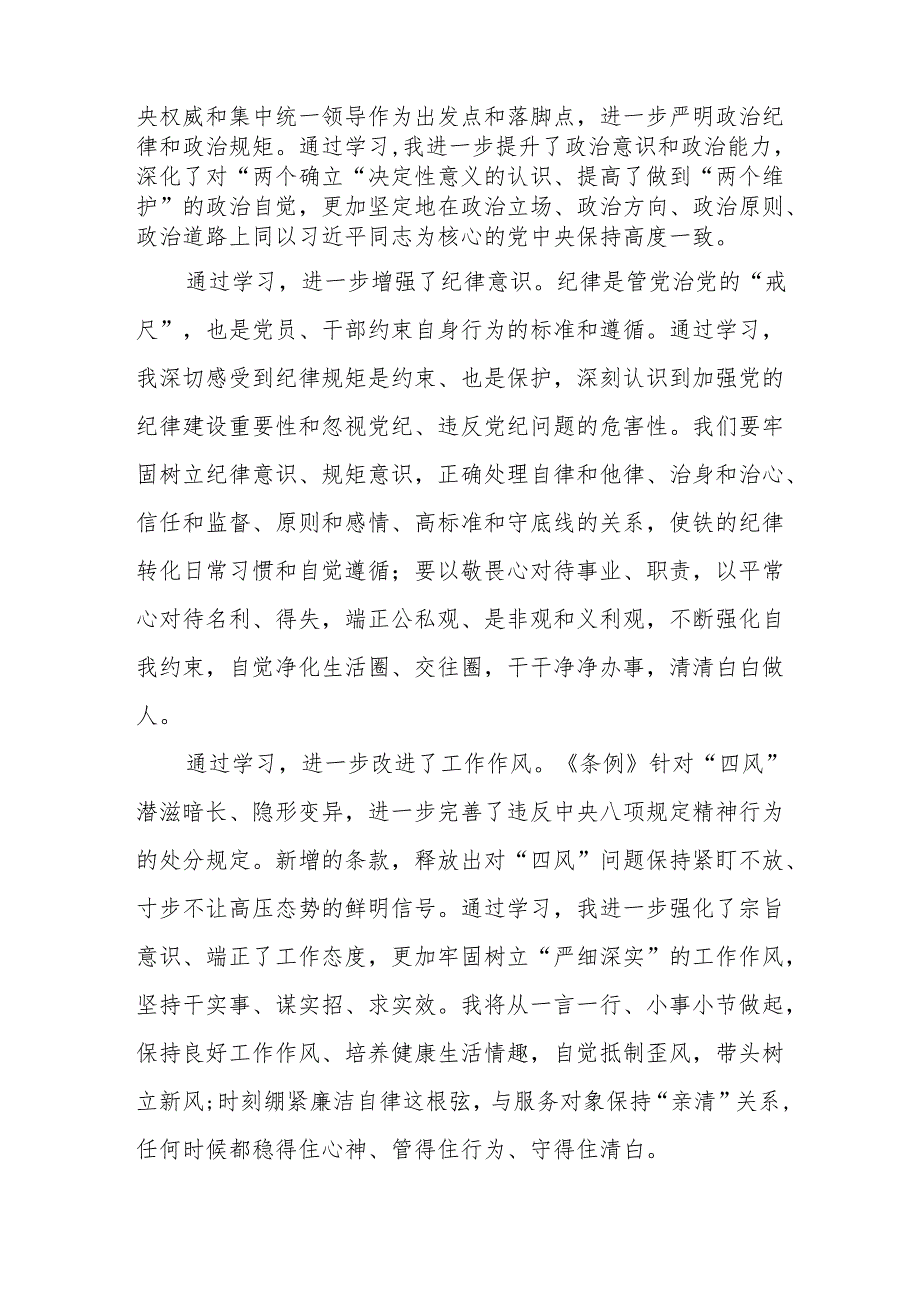 央权威和集中统一领导作为出发点和落脚点，进一步严明政治纪
律和政治规矩。通过学习,我进一步提升了政治意识和政治能力，
深化了对“两个确立“决定性意义的认识、提高了做到“两个维
护”的政治自觉，更加坚定地在政治立场、政治方向、政治原则、
政治道路上同以习近平同志为核心的党中央保持高度一致。
通过学习，进一步增强了纪律意识。纪律是管党治党的“戒
尺”，也是党员、干部约束自身行为的标准和遵循。通过学习，
我深切感受到纪律规矩是约束、也是保护，深刻认识到加强党的
纪律建设重要性和忽视党纪、违反党纪问题的危害性。我们要牢
固树立纪律意识、规矩意识，正确处理自律和他律、治身和治心、
信任和监督、原则和感情、高标准和守底线的关系，使铁的纪律
转化日常习惯和自觉遵循；要以敬畏心对待事业、职责，以平常
心对待名利、得失，端正公私观、是非观和义利观，不断强化自
我约束，自觉净化生活圈、交往圈，干干净净办事，清清白白做
人。
通过学习，进一步改进了工作作风。《条例》针对“四风”
潜滋暗长、隐形变异，进一步完善了违反中央八项规定精神行为
的处分规定。新增的条款，释放出对“四风”问题保持紧盯不放、
寸步不让高压态势的鲜明信号。通过学习，我进一步强化了宗旨
意识、端正了工作态度，更加牢固树立“严细深实”的工作作风，
坚持干实事、谋实招、求实效。我将从一言一行、小事小节做起，
保持良好工作作风、培养健康生活情趣，自觉抵制歪风，带头树
立新风;时刻绷紧廉洁自律这根弦，与服务对象保持“亲清”关系，
任何时候都稳得住心神、管得住行为、守得住清白。